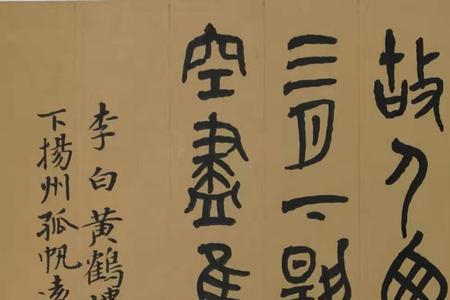 故人西
三月下
空盡
李白黃鶴樓
下揚州孤帆遠